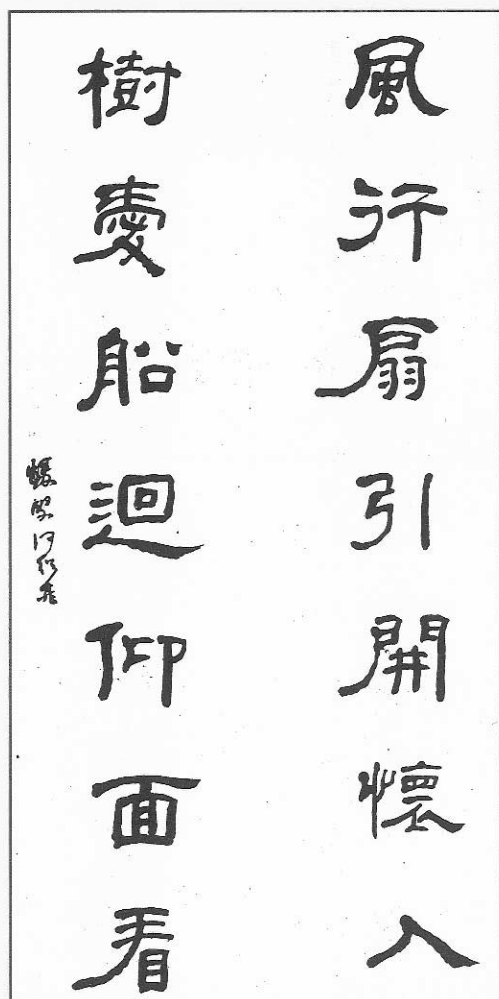 風行扇引開懷入
樹愛船迴仰面看
蝯叟何紹基